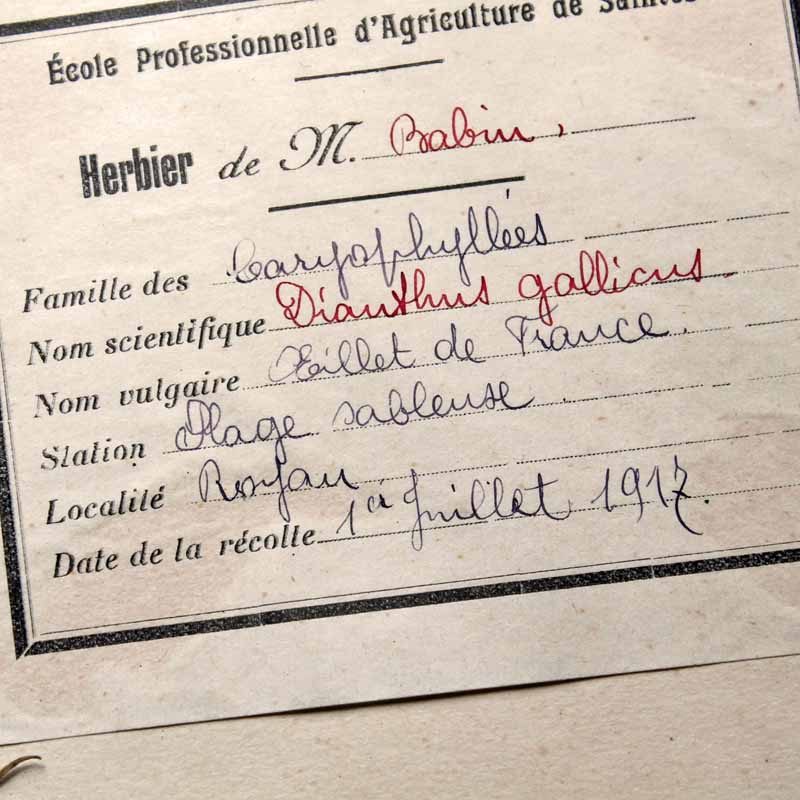 École Professionnelle d'Agriculture de Saintes
Herbier de M. Babin,
Famille des Caryophyllées
Nom scientifique Dianthus gallicus
Nom vulgaire Œillet de France.
Station Plage sableuse.
Localité Royan
Date de la récolte 1er Juillet 1917.